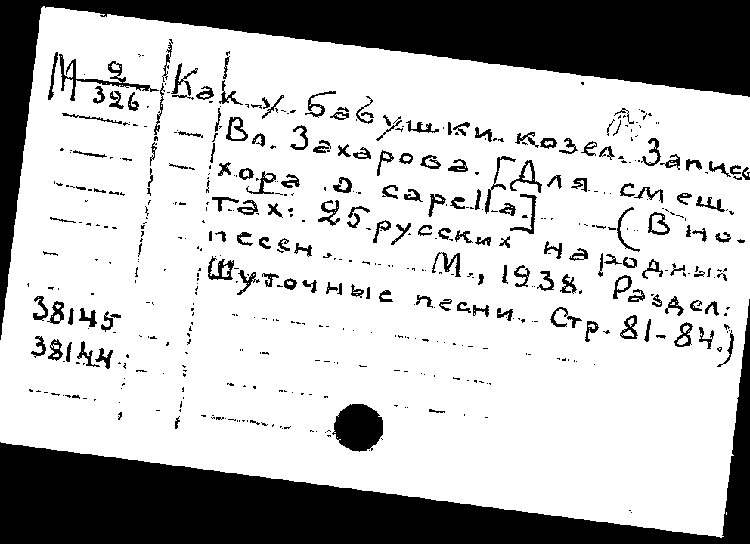 М 2/326
Как у бабушки козел. Запись
Вл. Захарова. [Для смеш.
хора a capella.] (В но-
тах: 25 русских народных
песен. М., 1938. Раздел:
Шуточные песни. Стр. 81-84.)
38145
38144